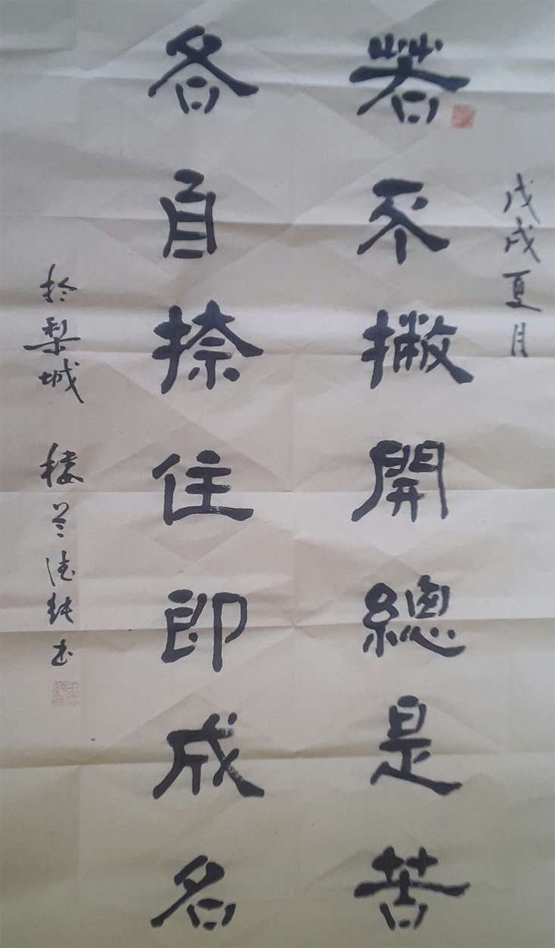 戊戌夏月
若不撇開總是苦
各自捺住即成名
於梨城 楼兰 书